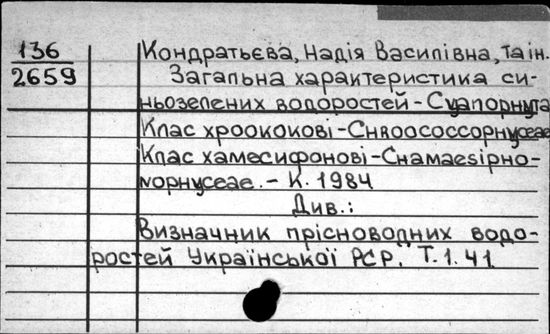 136
2659
Кондратьєва, Надія Василівна, та ін.
Загальна характеристика си-
ньозелених водоростей - Cyanophyta
Клас хроококові - Chroococcophyceae
Клас хамесифонові - Chamaesipho-
nophyceae. - К. 1984
Див.:
Визначник прісноводних водо-
ростей Української РСР. Т. 1. 41